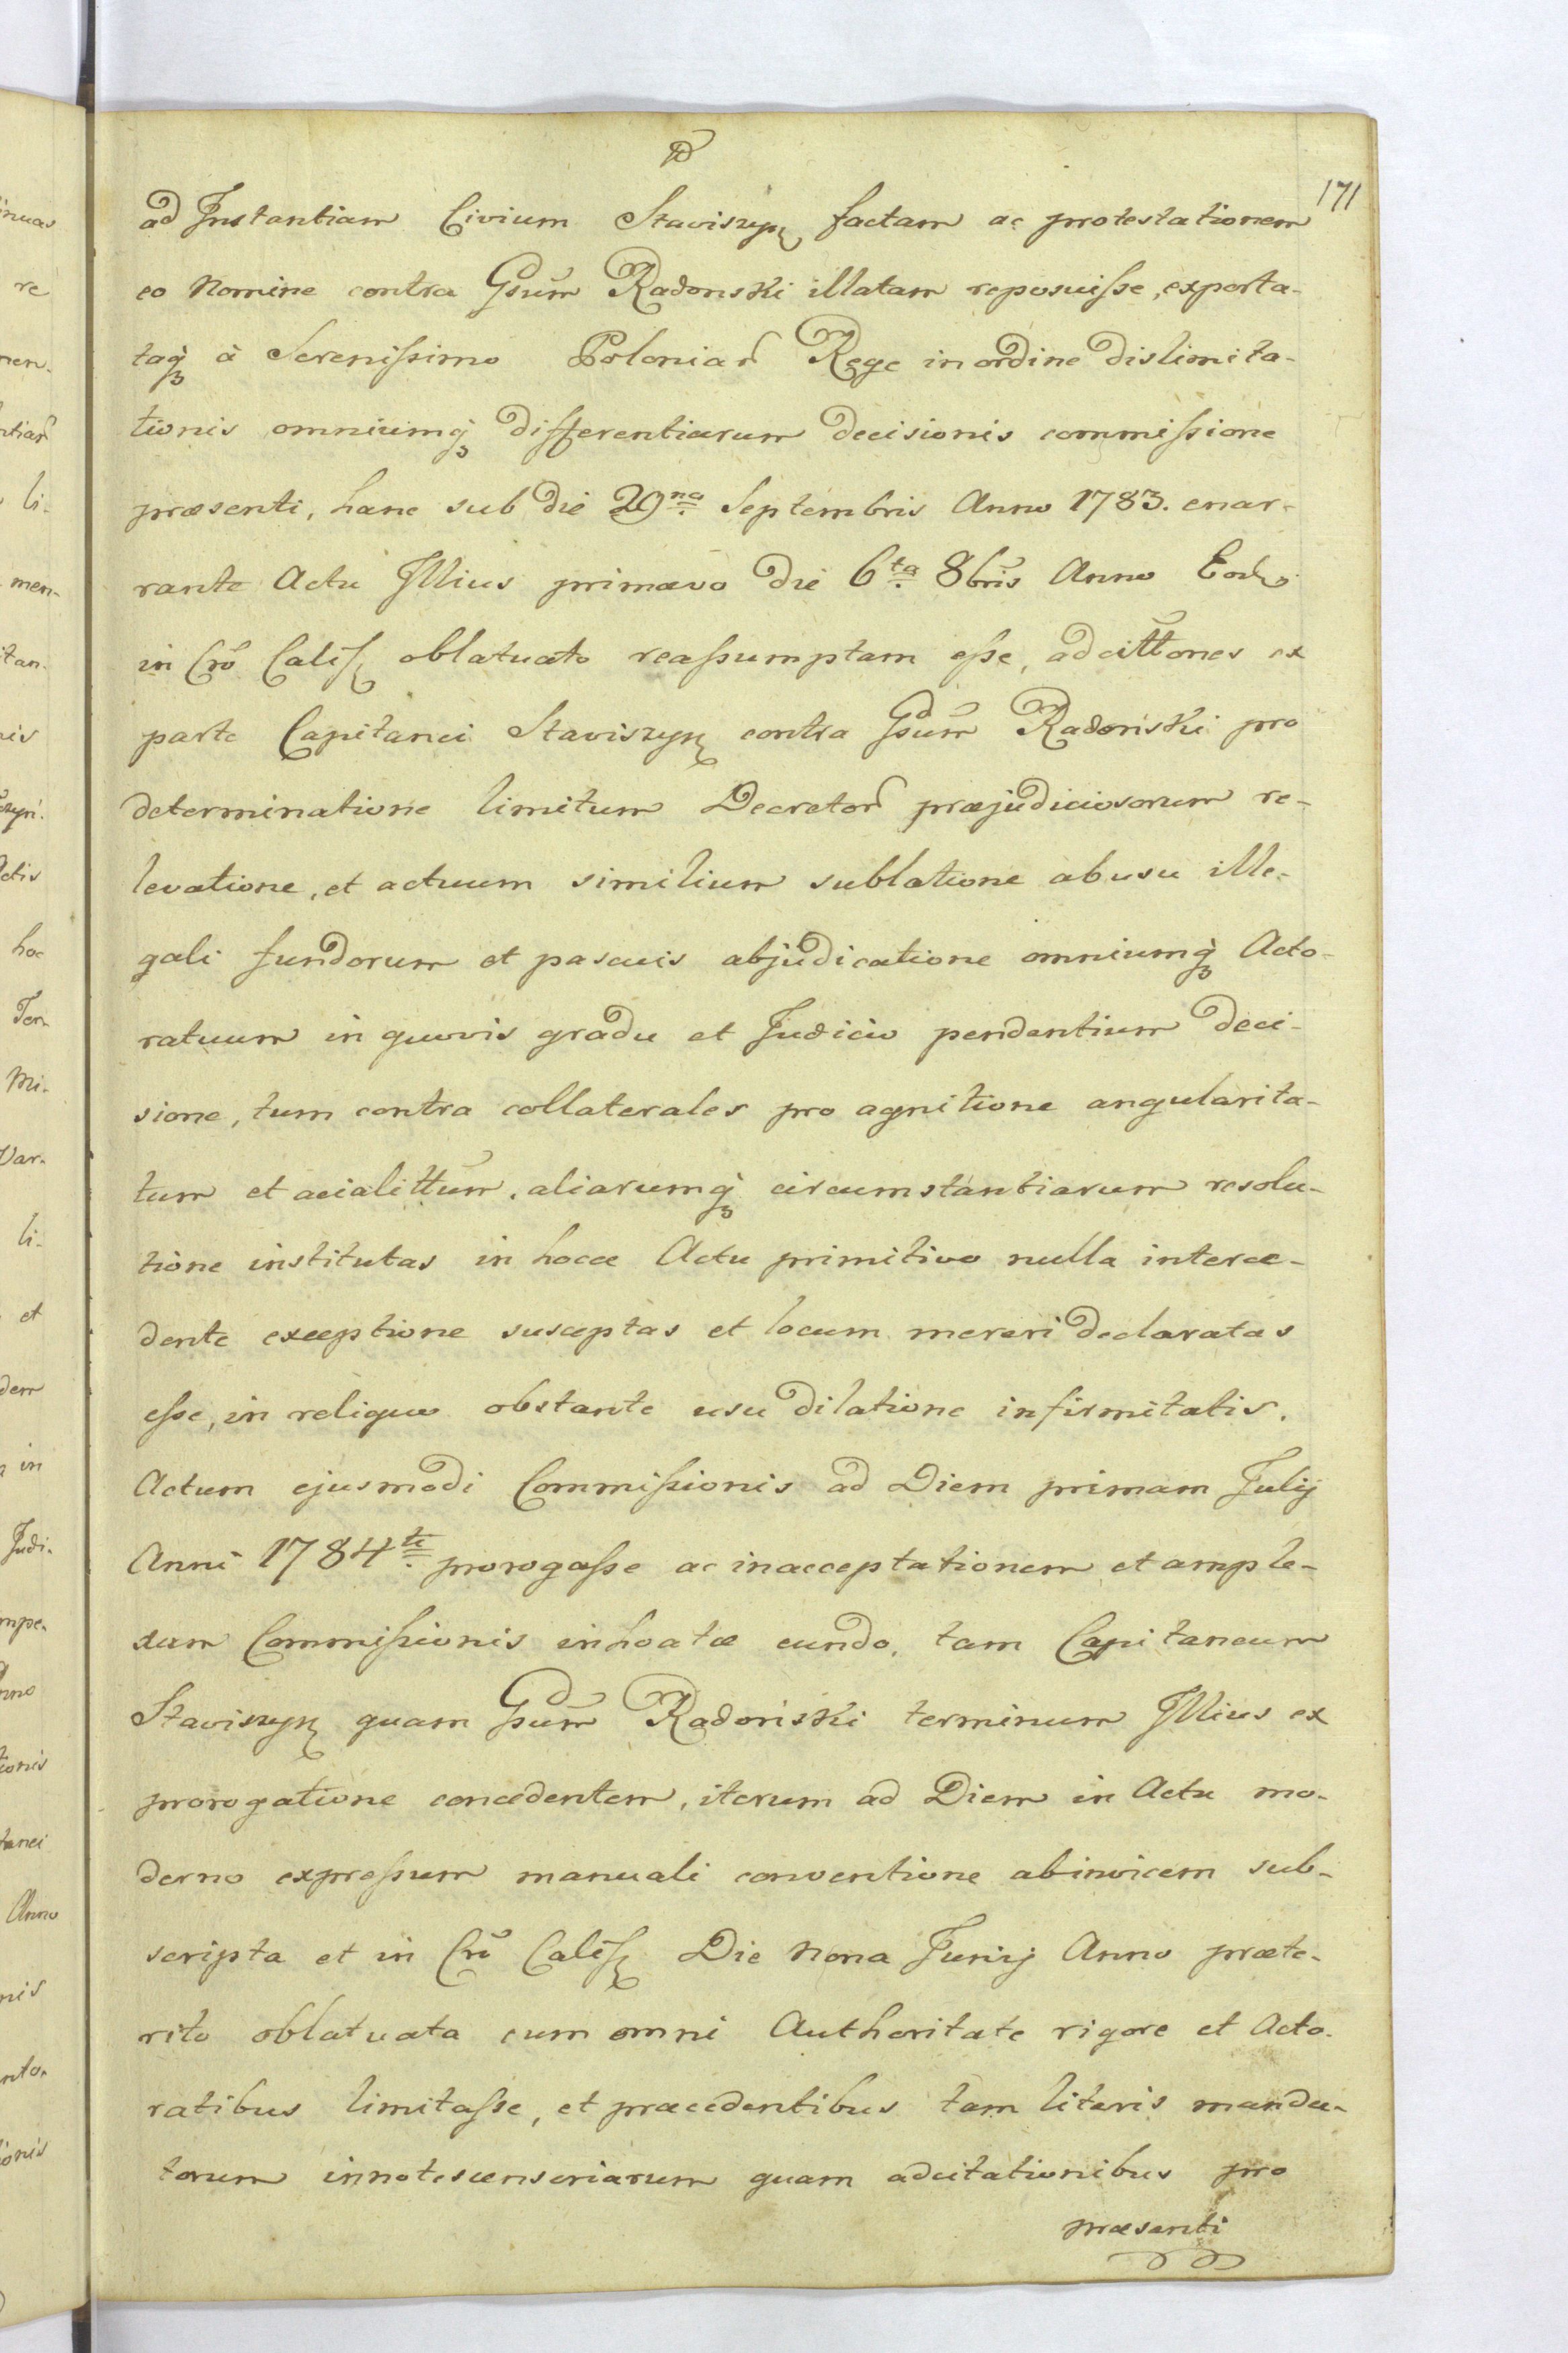 171
ad Instantiam Civium Staviszyn factam ac protestationem
eo Nomine contra Gsum Radonski illatam reposuisse, exporta-
taq̀ à Serenissimo Poloniar Rege in ordine dislimita-
tionis omniumq̀ differentiarum decisionis commissione
præsenti, hanc sub die 29na Septembris Anno 1783. enar-
rante Actu Illius primævo die 6ta 8bris Anno Eodo
in Cro Calis oblatuato reassumptam esse, adcittones ex
parte Capitanei Staviszyn contra Gsum Radoński pro
determinatione limitum Decretor præjudiciosorum re-
levatione, et actuum similium sublatione abusu ille-
gali fundorum et pascuis abjudicatione omniumq̀ Acto-
ratuum in quovis gradu et Judicio pendentium deci-
sione, tum contra collaterales pro agnitione angularita-
tum et acialittum, aliarumq̀ circumstantiarum resolu-
tione institutas in hocce Actu primitivo nulla interce-
dente exceptione susceptas et locum mereri declaratas
esse, in reliquo obstante usu dilatione infirmitatis.
Actum ejusmodi Commissionis ad Diem primam Julij
Anni 1784ti prorogasse ac in acceptationem et ample-
xum Commissionis inhoatæ eundo, tam Capitaneum
Staviszyn quam Gsum Radoński terminum Illius ex
prorogatione concedentem, iterum ad Diem in Actu mo-
derno expressum manuali conventione abinvicem sub-
scripta et in Cro Calis Die Nona Junij Anno præte-
rito oblatuata cum omni Authoritate rigore et Acto-
ratibus limitasse, et præcedentibus tam literis manda-
torum innotescenseriarum quam adcitationibus pro
præsenti